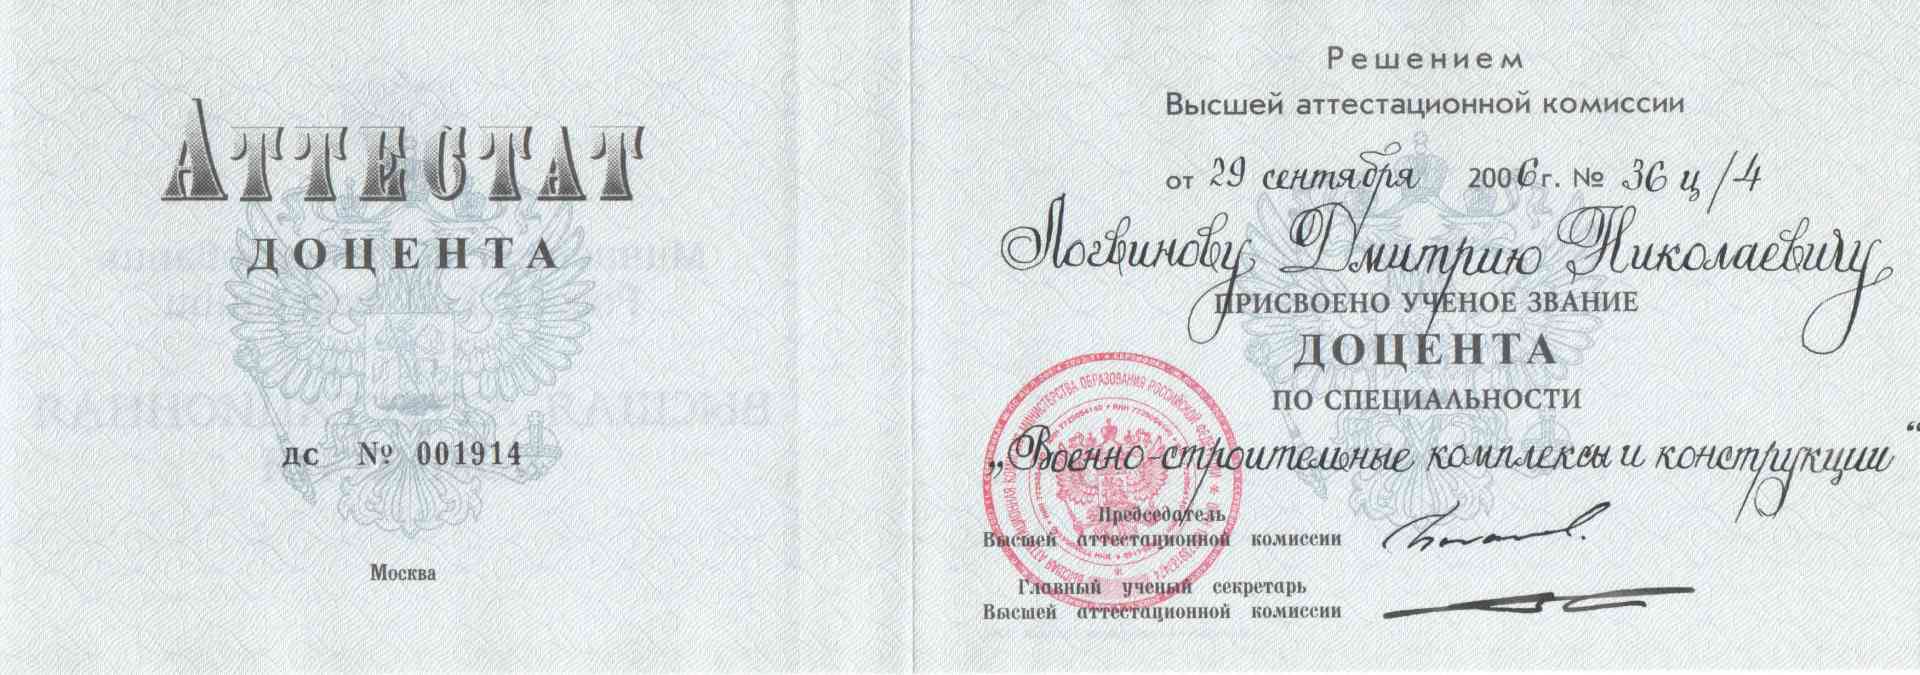 Аттестат
ДОЦЕНТА
ДС № 001914
Москва
Решением
Высшей аттестационной комиссии
от 29 сентября 2006 г. № 36 ц/4
Логвинову Дмитрию Николаевичу
ПРИСВОЕНО УЧЕНОЕ ЗВАНИЕ
ДОЦЕНТА
ПО СПЕЦИАЛЬНОСТИ
„Военно-строительные комплексы и конструкции“
Председатель
Высшей аттестационной комиссии
Главный ученый секретарь
Высшей аттестационной комиссии
МИНИСТЕРСТВА ОБРАЗОВАНИЯ РОССИЙСКОЙ
ВЫСШАЯ АТТЕСТАЦИОННАЯ